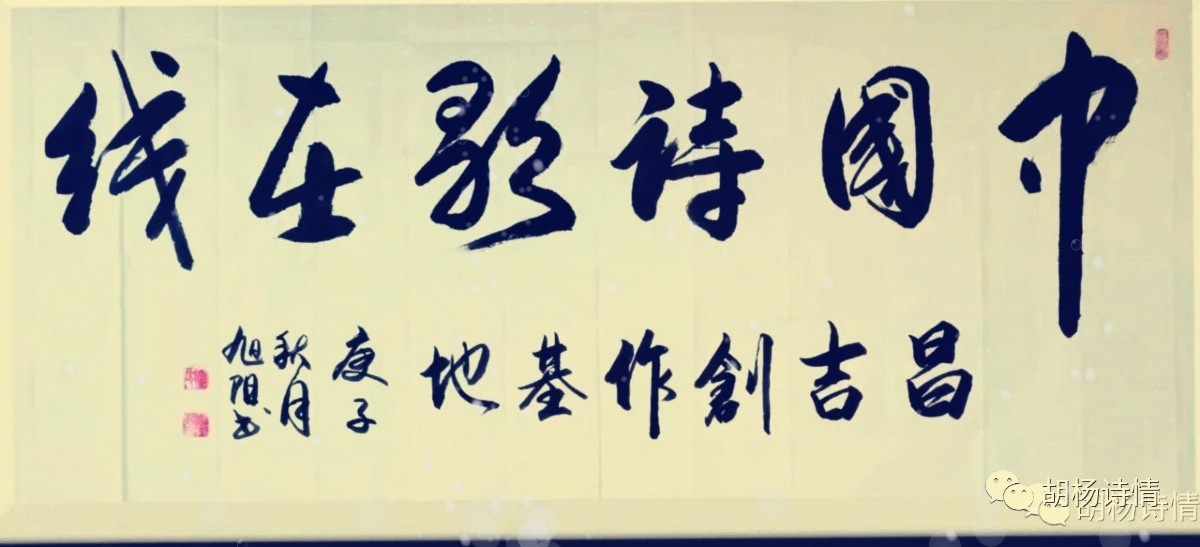 中國詩歌在线
昌吉創作基地
庚子
秋月
旭阳书
胡杨诗情
胡杨诗情